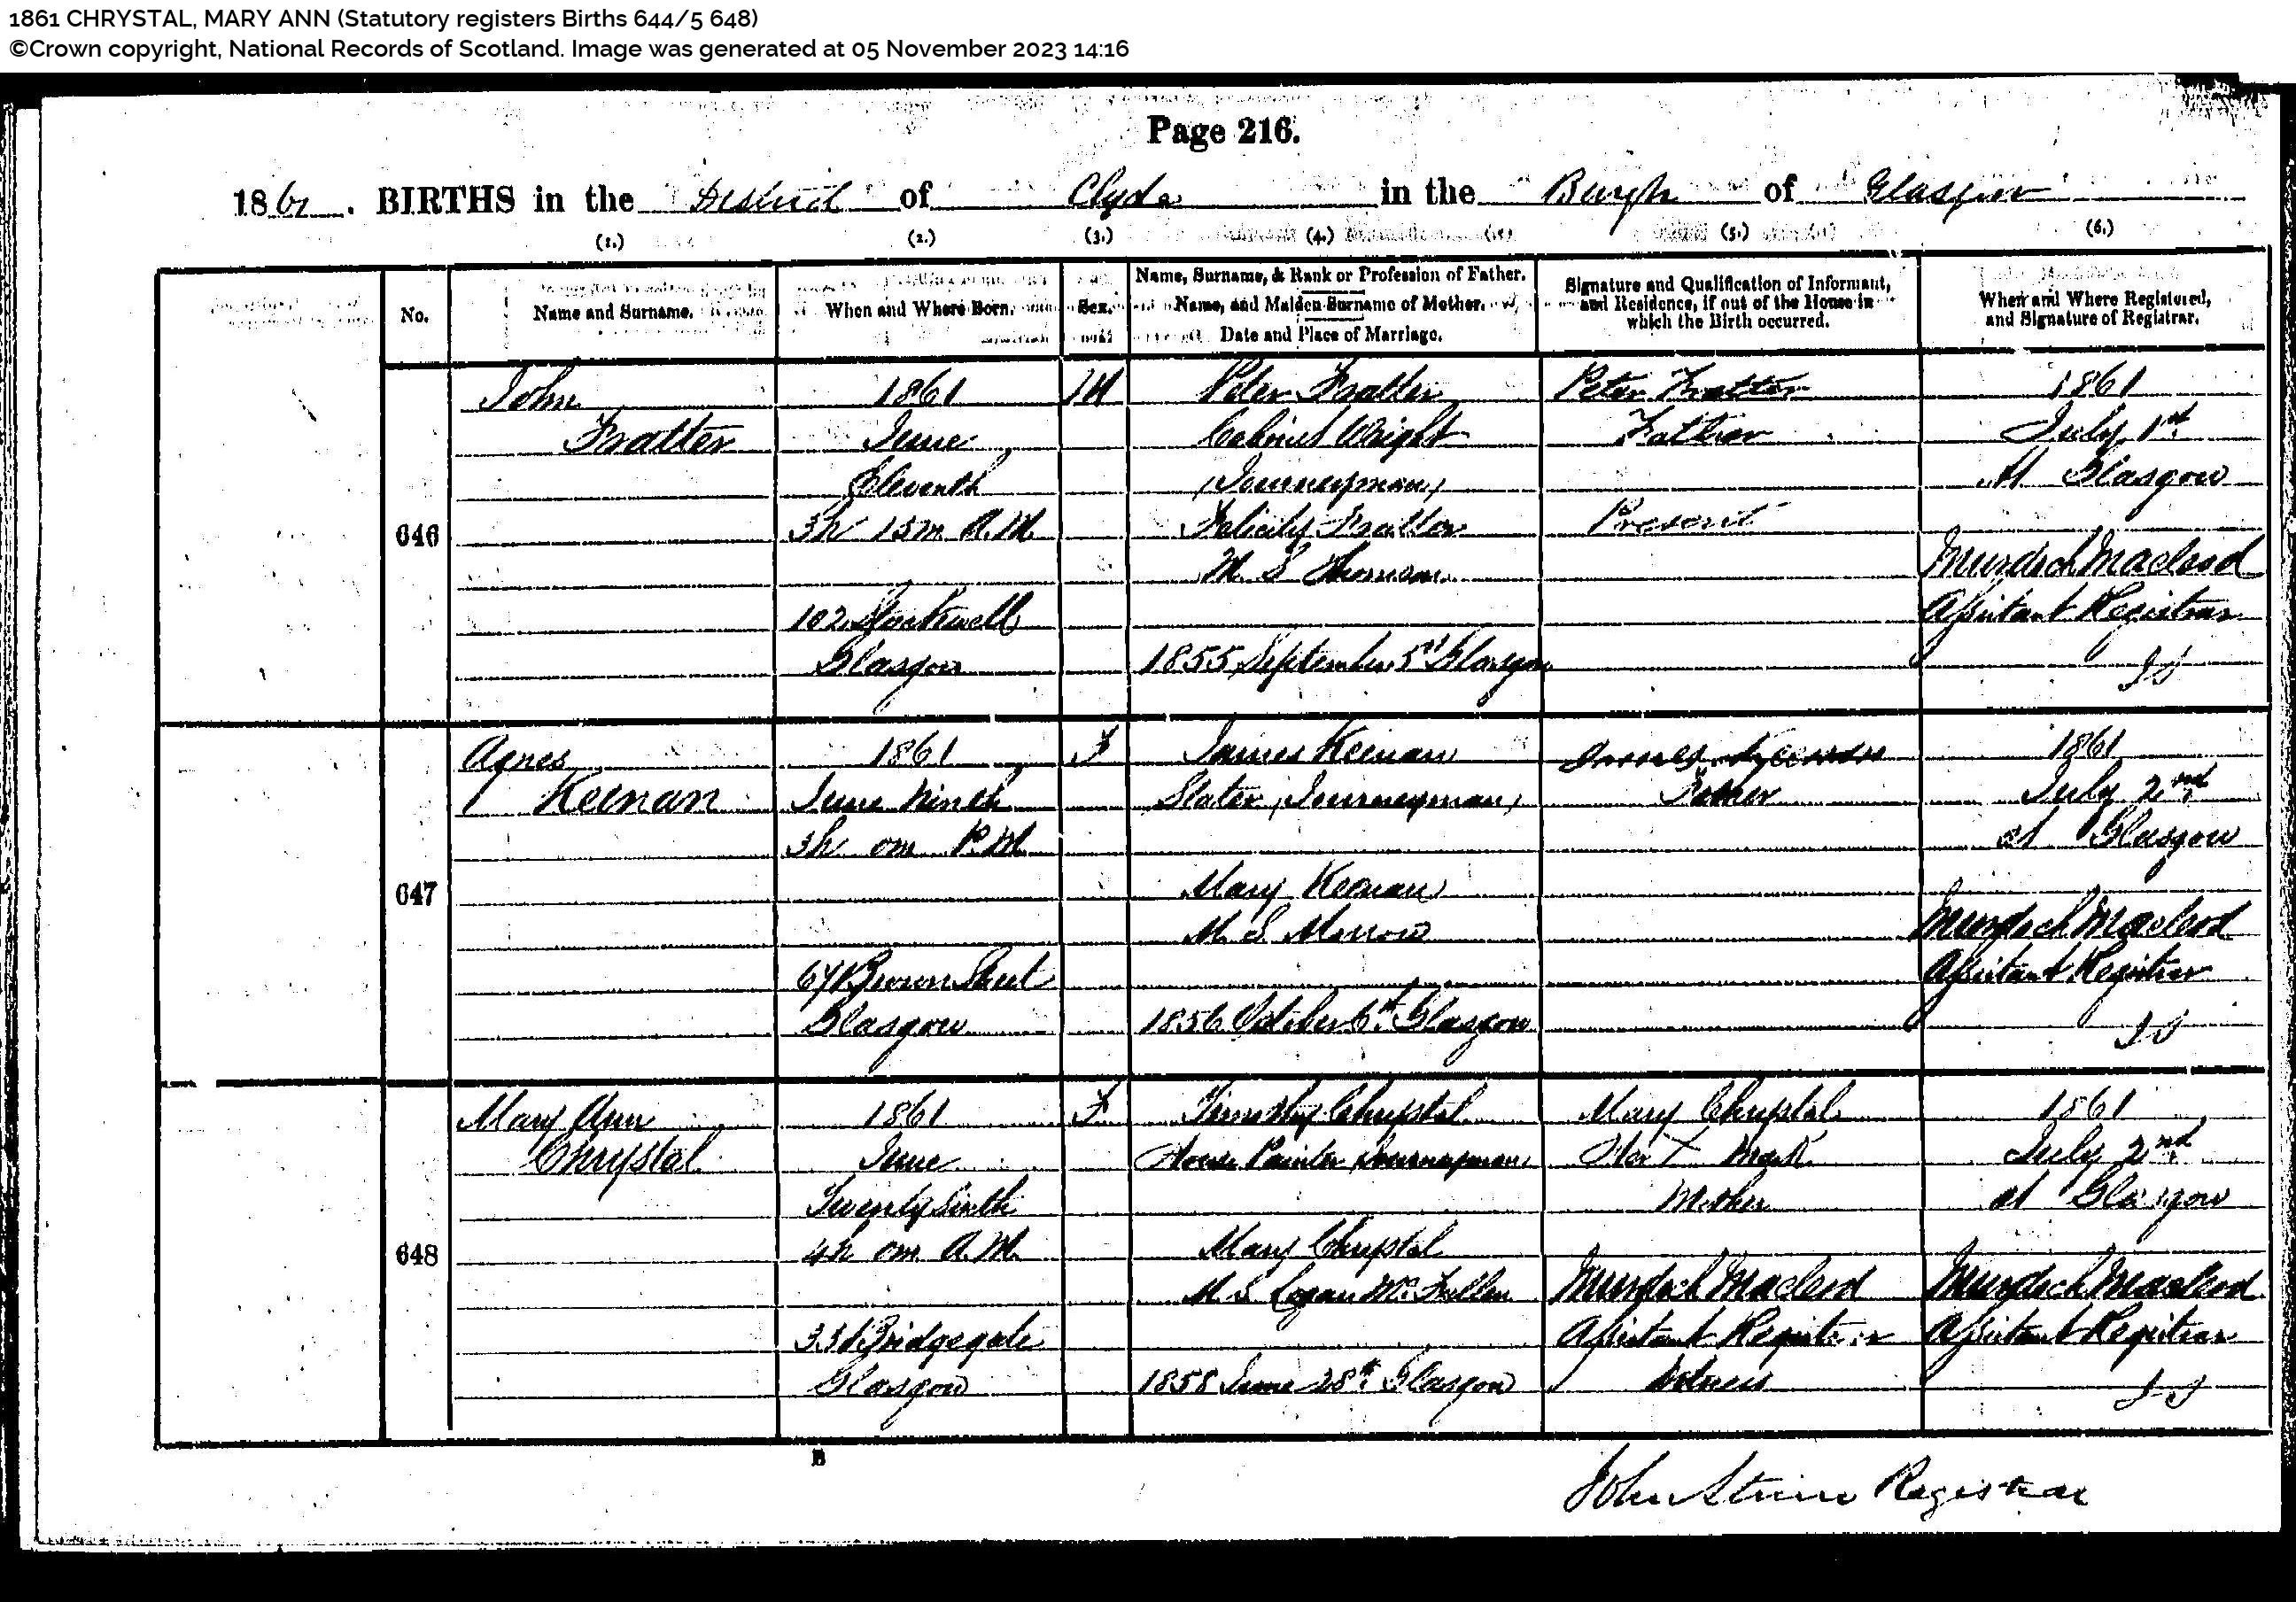 1861 CHRYSTAL, MARY ANN (Statutory registers Births 644/5 648)
©Crown copyright, National Records of Scotland. Image was generated at 05 November 2023 14:16
Page 216.
1861. BIRTHS in the District of Clyde in the Burgh of Glasgow
(1.) (2.) (3.) (4.) (5.) (6.)
No.
Name and Surname.
When and Where Born.
Sex.
Name, Surname, & Rank or Profession of Father.
Name, and Maiden Surname of Mother.
Date and Place of Marriage.
Signature and Qualification of Informant,
and Residence, if out of the House in
which the Birth occurred.
When and Where Registered,
and Signature of Registrar.
646
John
Fratter
1861
June
Eleventh
3h 15m A.M.
102 Stockwell
Glasgow
M
Peter Fratter
Cabinet Wright
(Journeyman)
Felicity Fratter
M. S Thomson
1855 September 5th Glasgow
Peter Fratter
Father
Present
1861
July 1st
At Glasgow
Murdoch Macleod
Assistant Registrar
J S
647
Agnes
Keenan
1861
June Ninth
3h 0m P.M.
67 Brown Street
Glasgow
F
James Keenan
Slater (Journeyman)
Mary Keenan
M. S Morrow
1856 October 6th Glasgow
James Keenan
Father
1861
July 2nd
at Glasgow
Murdoch Macleod
Assistant Registrar
J S
648
Mary Ann
Chrystal
1861
June
Twenty Sixth
4h 0m A.M.
Bridgegate
Glasgow
F
Timothy Chrystal
House Painter (Journeyman)
Mary Chrystal
M. S Logan Mc
1858 June 28th Glasgow
Mary Chrystal
Her X Mark
Mother
Murdoch Macleod
Assistant Registrar
Witness
1861
July 2nd
at Glasgow
Murdoch Macleod
Assistant Registrar
J S
B
John Registrar